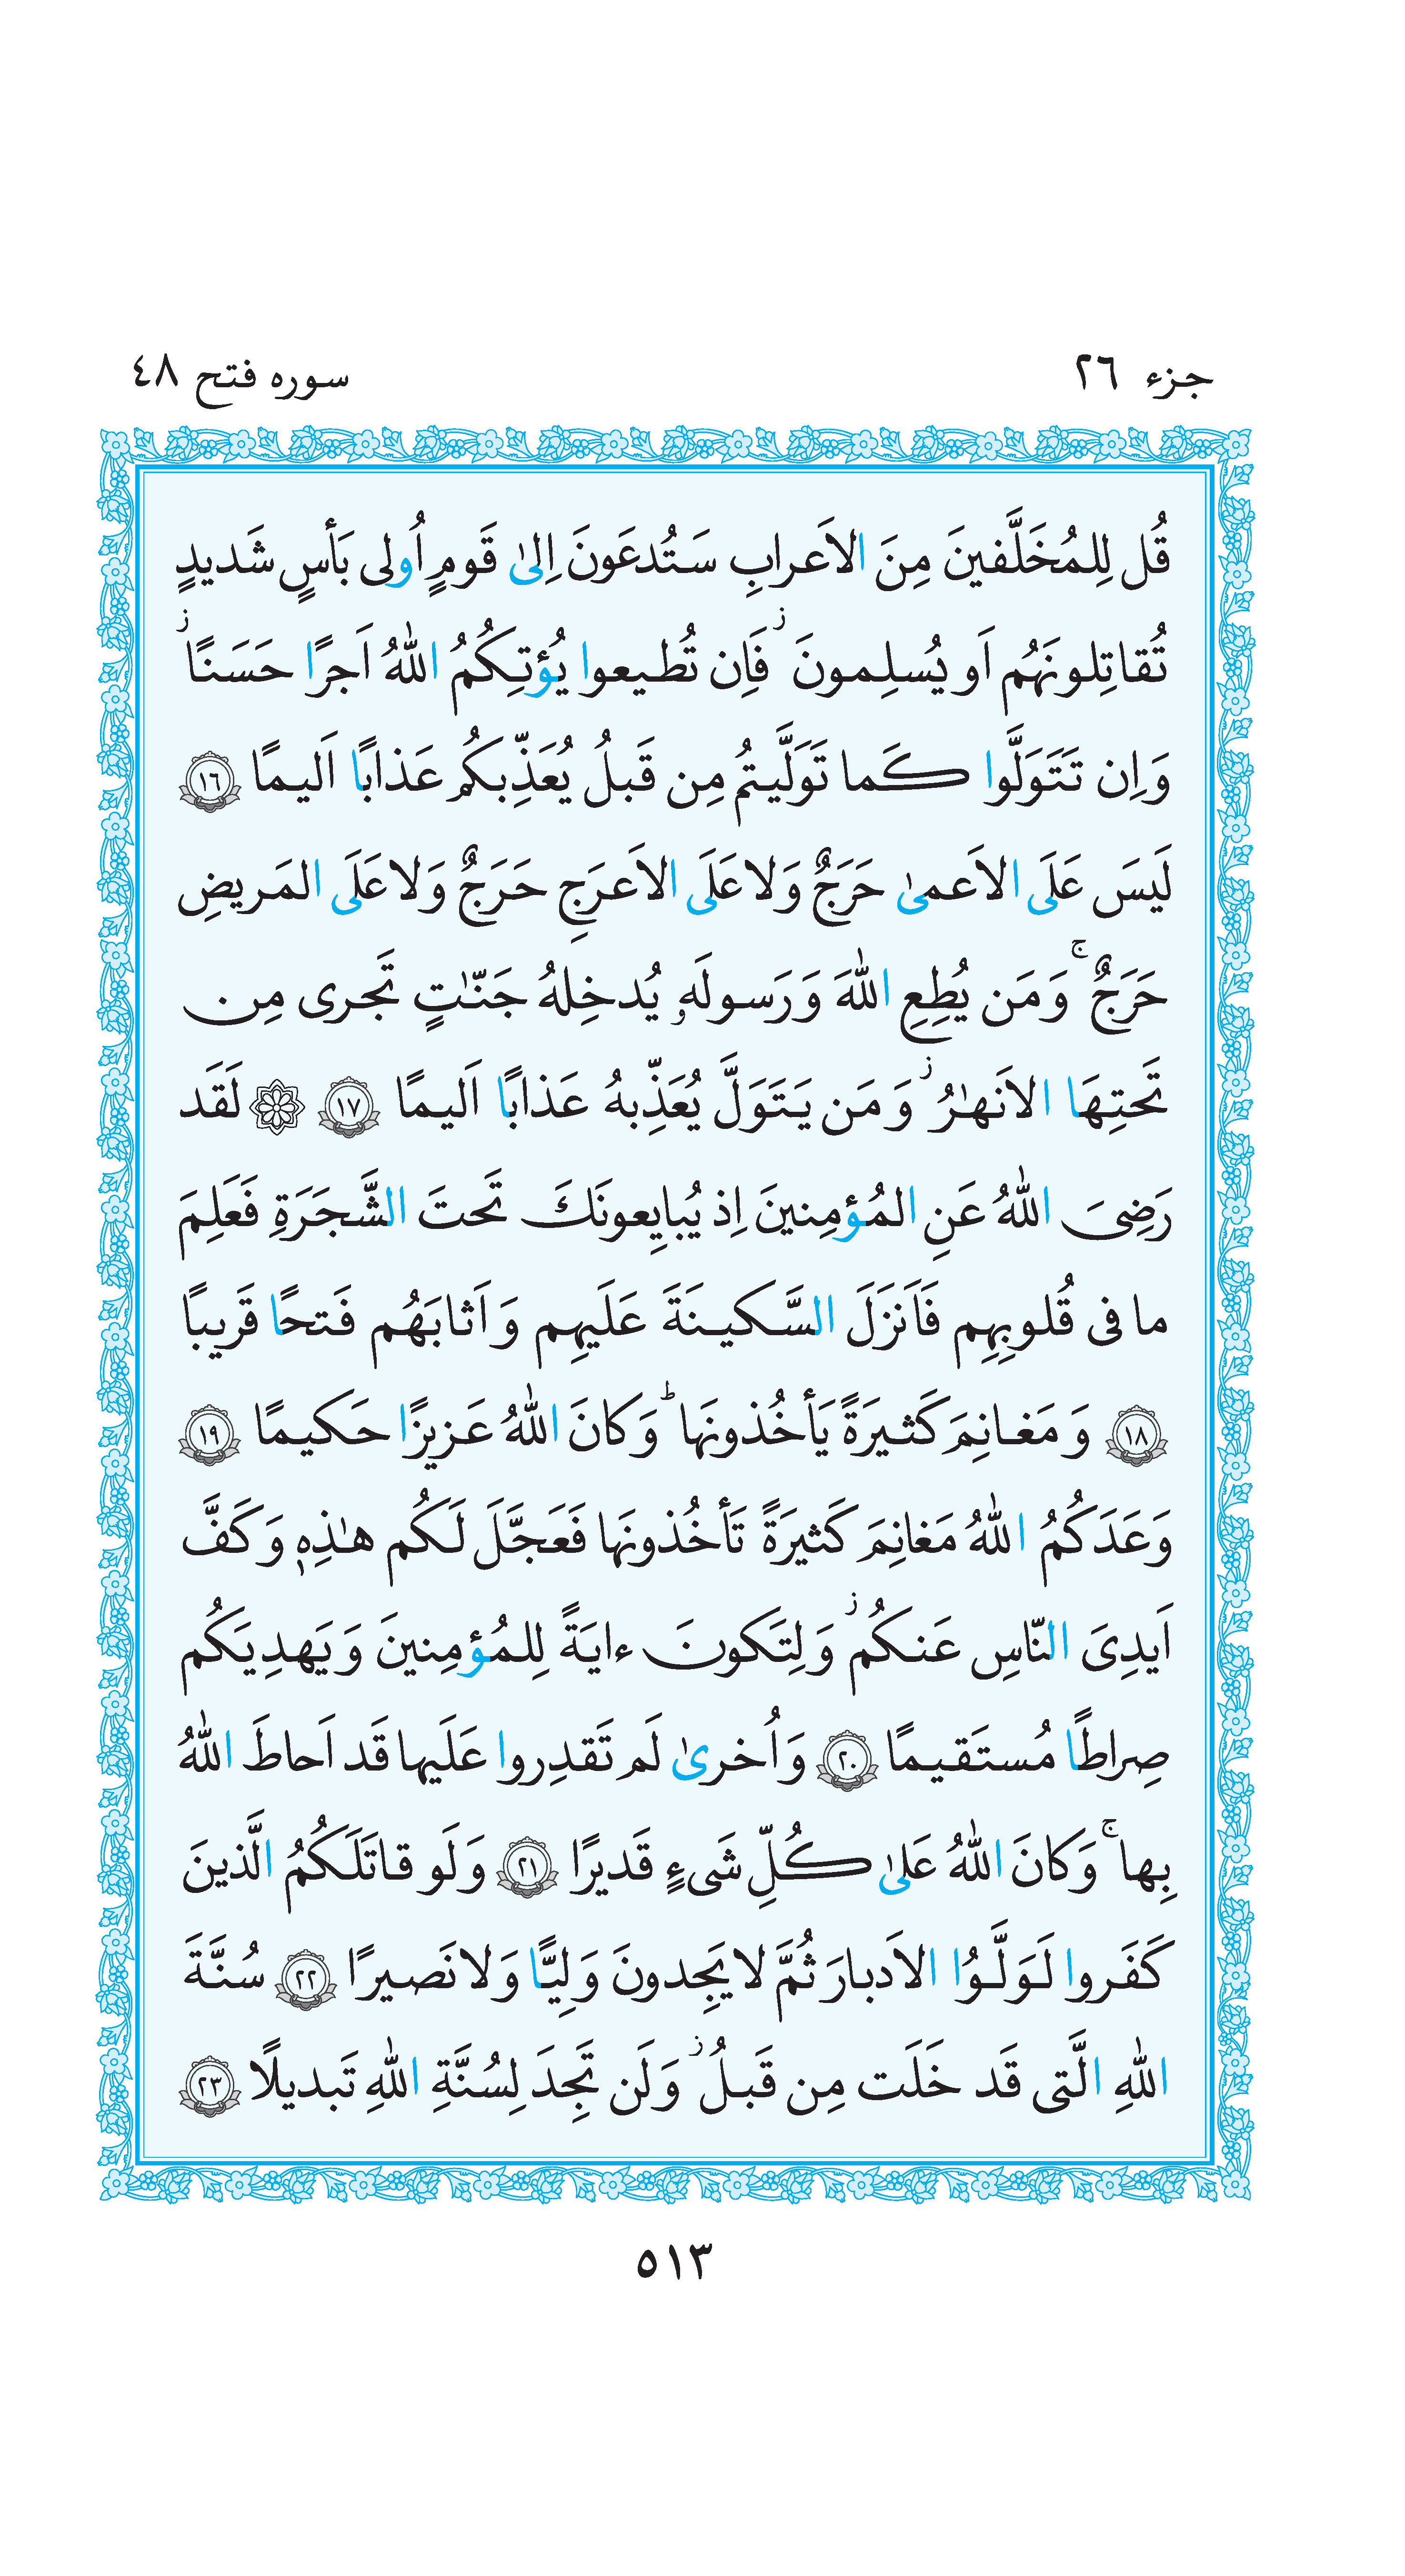 جزء ٢٦
سوره فتح ٤٨
قُل لِلمُخَلَّفينَ مِنَ الاَعرابِ سَتُدعَونَ اِلىٰ قَومٍ اُولى بَأسٍ شَديدٍ
تُقاتِلونَهُم اَو يُسلِمونَ ۖز فَاِن تُطيعوا يُؤتِكُمُ اللهُ اَجرًا حَسَنًا ز
وَاِن تَتَوَلَّوا كَما تَوَلَّيتُم مِن قَبلُ يُعَذِّبكُم عَذابًا اَليمًا ١٦
لَيسَ عَلَى الاَعمىٰ حَرَجٌ وَلا عَلَى الاَعرَجِ حَرَجٌ وَلا عَلَى المَريضِ
حَرَجٌ ۚ وَ مَن يُطِعِ اللهَ وَ رَسولَهٗ يُدخِلهُ جَنّٰتٍ تَجرى مِن
تَحتِهَا الاَنهٰرُ ز وَ مَن يَتَوَلَّ يُعَذِّبهُ عَذابًا اَليمًا ١٧ ۞ لَقَد
رَضِىَ اللهُ عَنِ المُؤمِنينَ اِذ يُبايِعونَكَ تَحتَ الشَّجَرَةِ فَعَلِمَ
ما فى قُلوبِهِم فَاَنزَلَ السَّكينَةَ عَلَيهِم وَ اَثابَهُم فَتحًا قَريبًا
١٨ وَ مَغانِمَ كَثيرَةً يَأخُذونَها ؕ وَكانَ اللهُ عَزيزًا حَكيمًا ١٩
وَعَدَكُمُ اللهُ مَغانِمَ كَثيرَةً تَأخُذونَها فَعَجَّلَ لَكُم هٰذِهٖ وَكَفَّ
اَيدِىَ النّاسِ عَنكُم ز وَ لِتَكونَ ءايَةً لِلمُؤمِنينَ وَ يَهدِيَكُم
صِراطًا مُستَقيمًا ٢٠ وَ اُخرىٰ لَم تَقدِروا عَلَيها قَد اَحاطَ اللهُ
بِها ۚ وَكانَ اللهُ عَلىٰ كُلِّ شَىءٍ قَديرًا ٢١ وَ لَو قاتَلَكُمُ الَّذينَ
كَفَروا لَوَلَّوُا الاَدبارَ ثُمَّ لا يَجِدونَ وَلِيًّا وَلا نَصيرًا ٢٢ سُنَّةَ
اللهِ الَّتى قَد خَلَت مِن قَبلُ ز وَ لَن تَجِدَ لِسُنَّةِ اللهِ تَبديلًا ٢٣
٥١٣